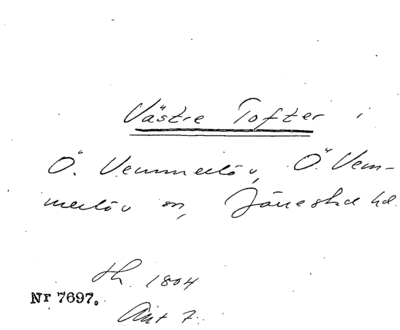 Västre Tofter i
Ö. Vemmerlöv, Ö. Vem-
merlöv sn, Järrestad hd.
1804
Nr 7697.
Akt 7.